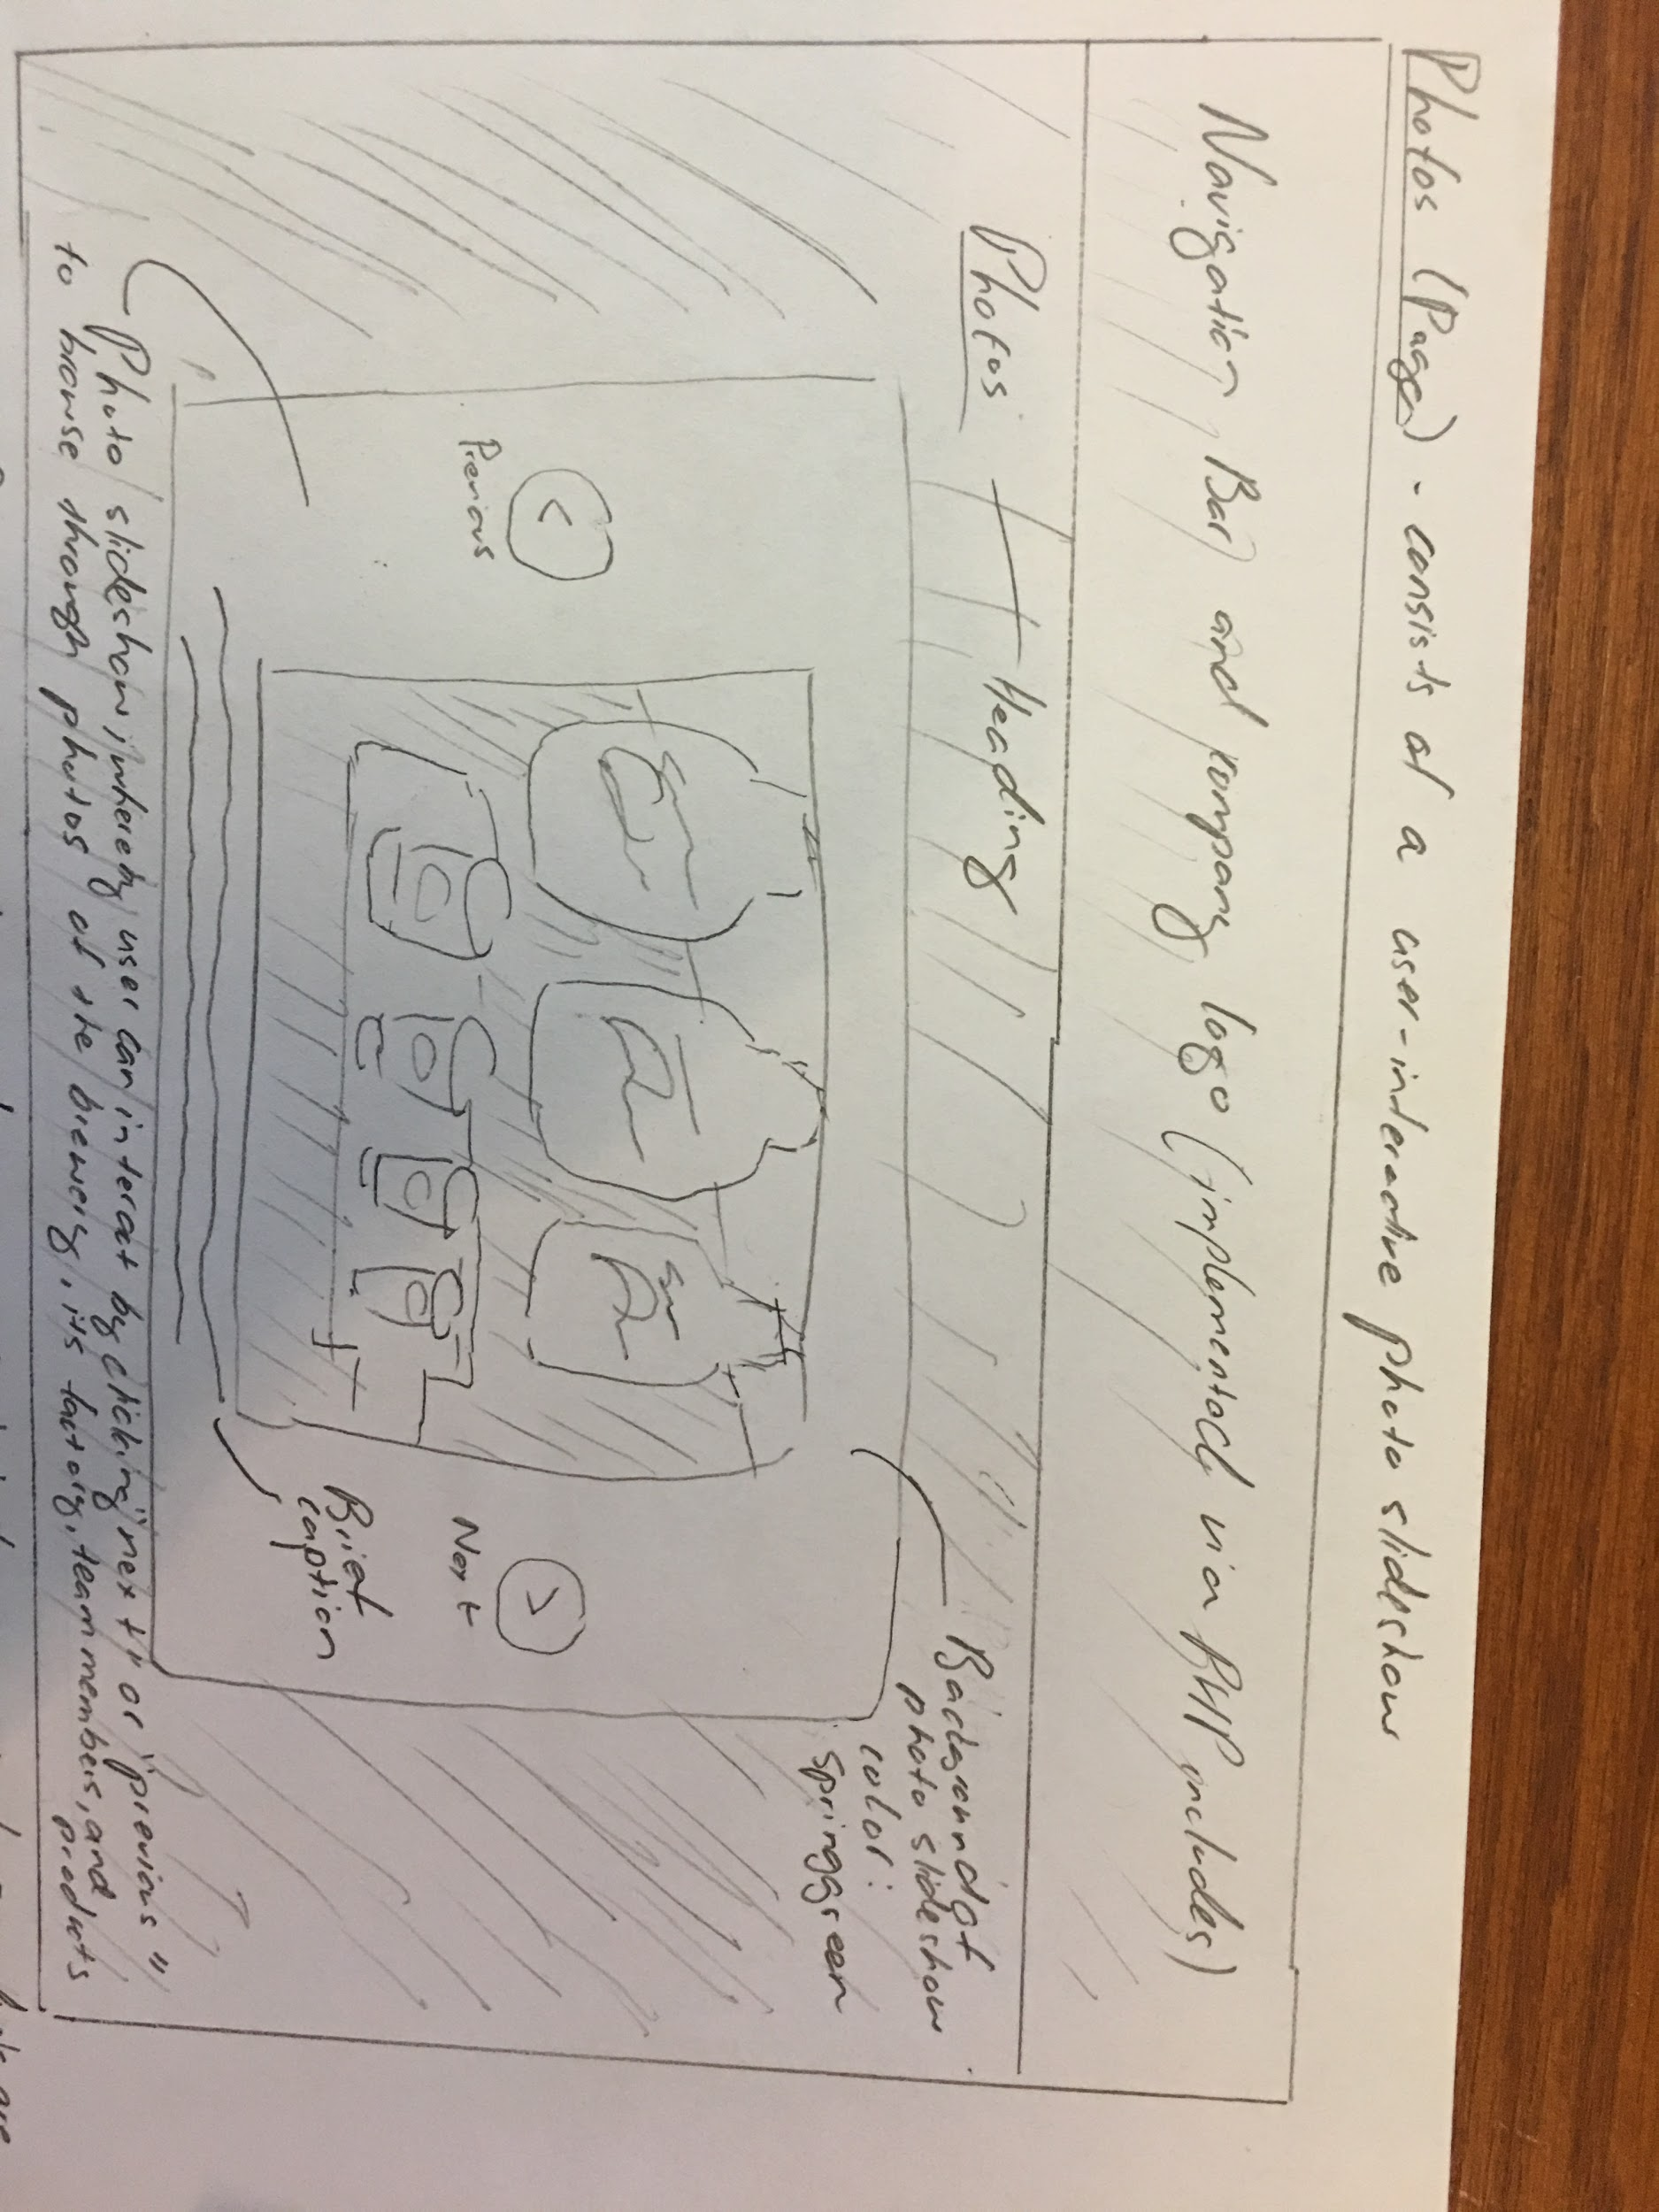 Photos (Page) - consists of a user-interactive photo slideshow
Navigation Bar and company logo (implemented via PHP includes)
Photos
Heading
Background of
photo slideshow
color:
springgreen
<
Previous
>
Next
Brief
caption
Photo slideshow, whereby user can interact by clicking "next" or "previous"
to browse through photos of the brewery, its factory, team members, and
products